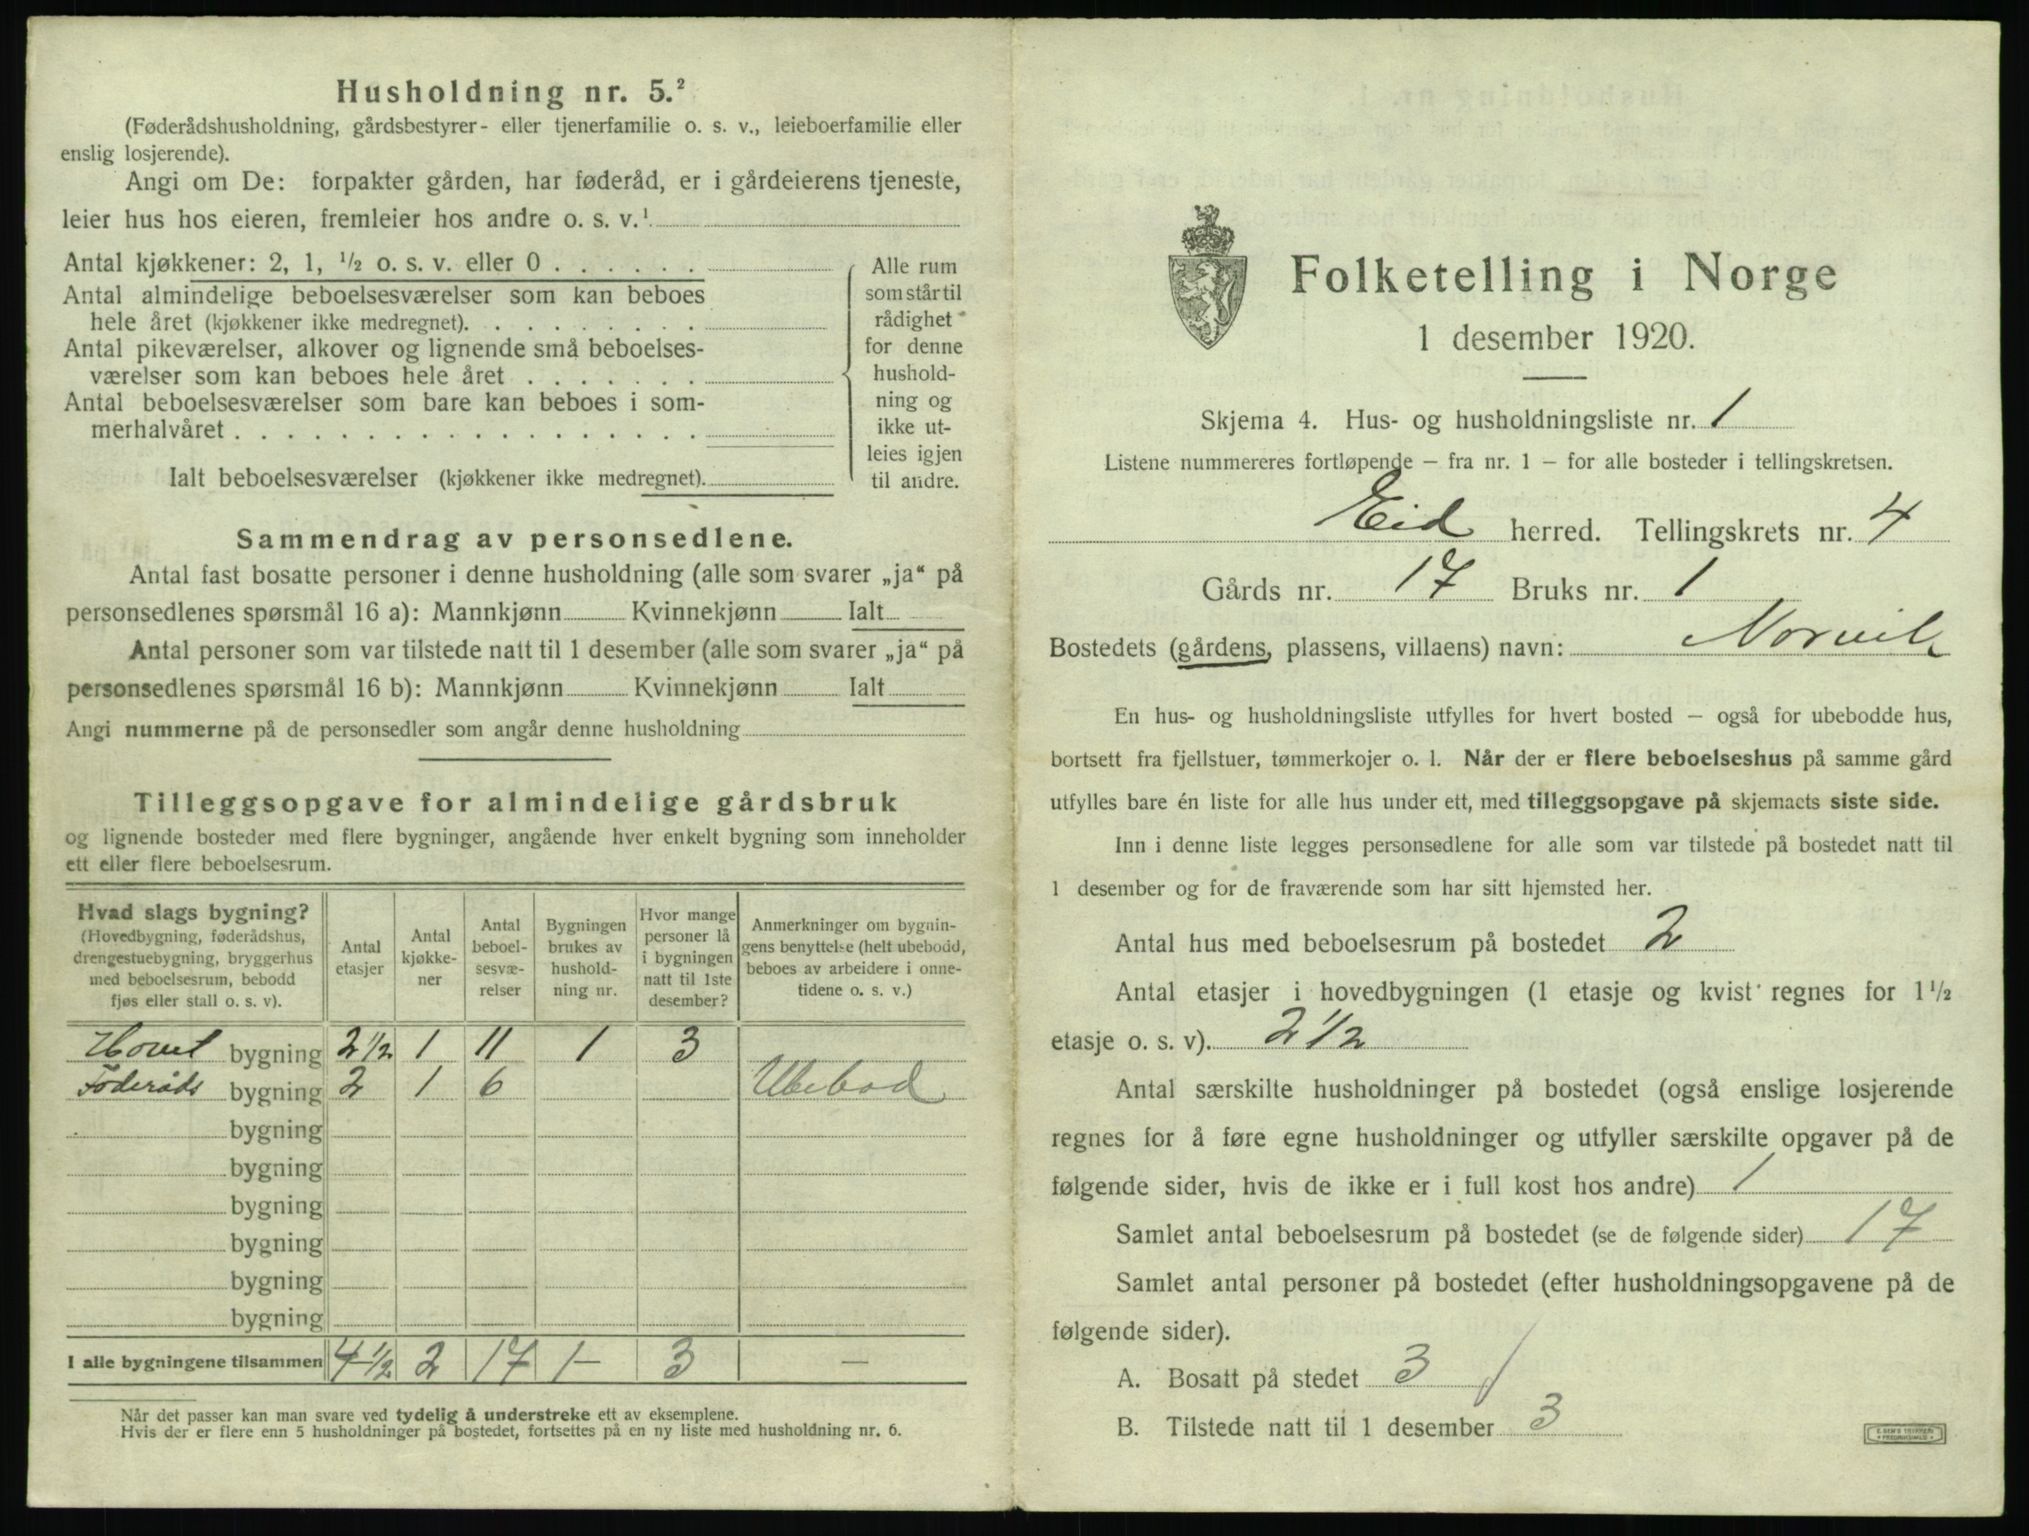 Husholdning nr. 5.²
(Føderådshusholdning, gårdsbestyrer- eller tjenerfamilie o. s. v., leieboerfamilie eller
enslig losjerende).
Angi om De: forpakter gården, har føderåd, er i gårdeierens tjeneste,
leier hus hos eieren, fremleier hos andre o. s. v.¹
Antal kjøkkener: 2, 1, ½ o. s. v. eller 0 . . . . . .
Antal almindelige beboelsesværelser som kan beboes
hele året (kjøkkener ikke medregnet). . . . . . . . .
Antal pikeværelser, alkover og lignende små beboelses-
værelser som kan beboes hele året . . . . . . .
Antal beboelsesværelser som bare kan beboes i som-
merhalvåret . . . . . . . . . . . . . . . . . .
Ialt beboelsesværelser (kjøkkener ikke medregnet).
Alle rum
som står til
rådighet
for denne
hushold-
ning og
ikke ut-
leies igjen
til andre.
Sammendrag av personsedlene.
Antal fast bosatte personer i denne husholdning (alle som svarer „ja“ på
personsedlenes spørsmål 16 a): Mannkjønn Kvinnekjønn Ialt
Antal personer som var tilstede natt til 1 desember (alle som svarer „ja“ på
personsedlenes spørsmål 16 b): Mannkjønn Kvinnekjønn Ialt
Angi nummerne på de personsedler som angår denne husholdning
Tilleggsopgave for almindelige gårdsbruk
og lignende bosteder med flere bygninger, angående hver enkelt bygning som inneholder
ett eller flere beboelsesrum.
Hvad slags bygning?
(Hovedbygning, føderådshus,
drengestuebygning, bryggerhus
med beboelsesrum, bebodd
fjøs eller stall o. s. v).
Antal
etasjer
Antal
kjøkke-
ner
Antal
beboel-
sesvæ-
relser
Bygningen
brukes av
hushold-
ning nr.
Hvor mange
personer lå
i bygningen
natt til 1ste
desember?
Anmerkninger om bygnin-
gens benyttelse (helt ubebodd,
beboes av arbeidere i onne-
tidene o. s. v.)
Hovet bygning 2 ½ 1 11 1 3
Føderåds bygning 2 1 6 Ubebod
bygning
bygning
bygning
bygning
bygning
bygning
I alle bygningene tilsammen 4-½ 2 17 1- 3 —
Når det passer kan man svare ved tydelig å understreke ett av eksemplene.
Hvis der er flere enn 5 husholdninger på bostedet, fortsettes på en ny liste med husholdning nr. 6.
Folketelling i Norge
1 desember 1920.
Skjema 4. Hus- og husholdningsliste nr. 1
Listene nummereres fortløpende – fra nr. 1 – for alle bosteder i tellingskretsen.
Eid herred. Tellingskrets nr. 4
Gårds nr. 17 Bruks nr. 1
Bostedets (gårdens, plassens, villaens) navn: Norvik
En hus- og husholdningsliste utfylles for hvert bosted – også for ubebodde hus,
bortsett fra fjellstuer, tømmerkojer o. l. Når der er flere beboelseshus på samme gård
utfylles bare én liste for alle hus under ett, med tilleggsopgave på skjemaets siste side.
Inn i denne liste legges personsedlene for alle som var tilstede på bostedet natt til
1 desember og for de fraværende som har sitt hjemsted her.
Antal hus med beboelsesrum på bostedet 2
Antal etasjer i hovedbygningen (1 etasje og kvist regnes for 1½
etasje o. s. v). 2 ½
Antal særskilte husholdninger på bostedet (også enslige losjerende
regnes for å føre egne husholdninger og utfyller særskilte opgaver på de
følgende sider, hvis de ikke er i full kost hos andre) 1
Samlet antal beboelsesrum på bostedet (se de følgende sider) 17
Samlet antal personer på bostedet (efter husholdningsopgavene på de
følgende sider).
A. Bosatt på stedet 3
B. Tilstede natt til 1 desember 3